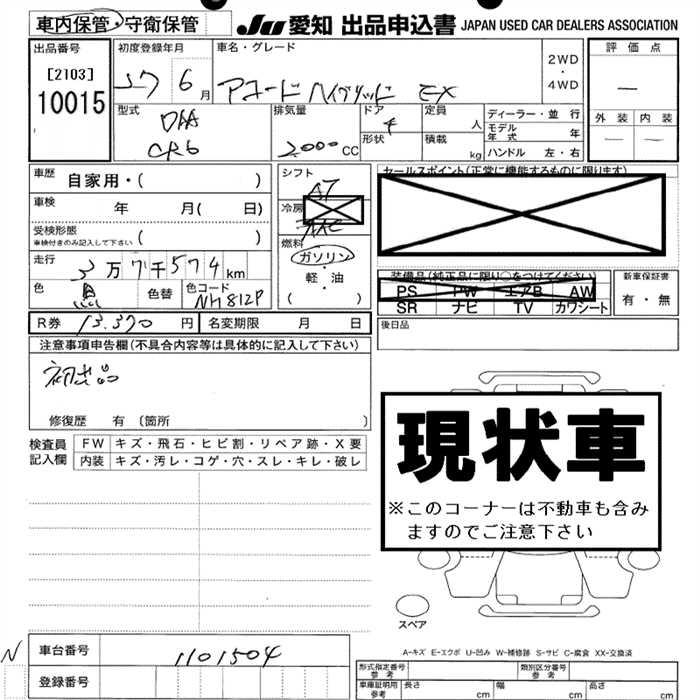 車内保管・守衛保管
JU 愛知 出品申込書 JAPAN USED CAR DEALERS ASSOCIATION
出品番号
[2103]
10015
初度登録年月
6月
車名・グレード
アコードハイブリッド EX
2WD
・
4WD
評価点
外装 内装
型式
DAA
CR6
排気量
2000cc
ドア
4
形状
定員
人
積載
kg
ディーラー・並行
モデル年式 年
ハンドル 左・右
車歴 自家用・( )
車検 年 月( 日)
受検形態
車検付きのみ記入して下さい ( )
走行 3万7千574km
色 黒 色替 色コード NH812P
R券 13,370円 名変期限 月 日
シフト
AT
冷房
AAC
燃料
ガソリン
・
軽・油
( )
セールスポイント(正常に機能するものに限ります)
装備品(純正品に限り○をつけてください)
PS PW エアB AW
SR ナビ TV カワシート
新車保証書
有・無
後日品
注意事項申告欄(不具合内容等は具体的に記入して下さい)
初出品
修復歴 有〔箇所 〕
検査員記入欄
FW キズ・飛石・ヒビ割・リペア跡・X要
内装 キズ・汚レ・コゲ・穴・スレ・キレ・破レ
現状車
※このコーナーは不動車も含み
ますのでご注意下さい
スペア
A-キズ E-エクボ U-凹み W-補修跡 S-サビ C-腐食 XX-交換済
N
車台番号 1101504
登録番号
形式指定番号
参考
類別区分番号
参考
車庫証明用
参考
長さ cm
幅 cm
高さ cm